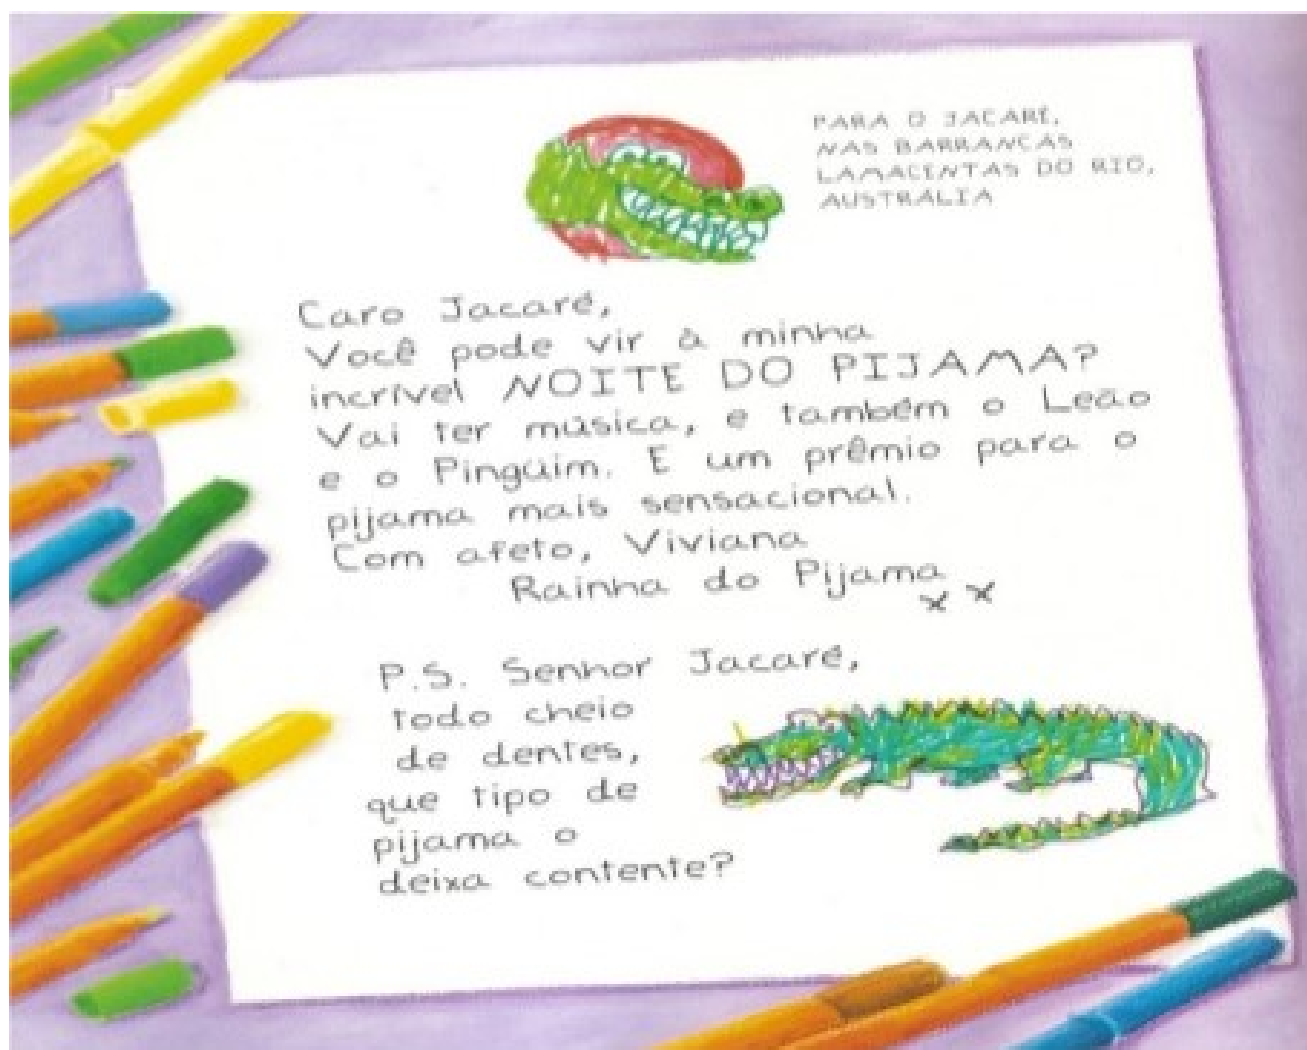 PARA O JACARÉ,
NAS BARRANCAS
LAMACENTAS DO RIO,
AUSTRÁLIA
Caro Jacaré,
Você pode vir à minha
incrível NOITE DO PIJAMA?
Vai ter música, e também o Leão
e o Pingüim. E um prêmio para o
pijama mais sensacional.
Com afeto, Viviana
Rainha do Pijama
x x
P.S. Senhor Jacaré,
todo cheio
de dentes,
que tipo de
pijama o
deixa contente?